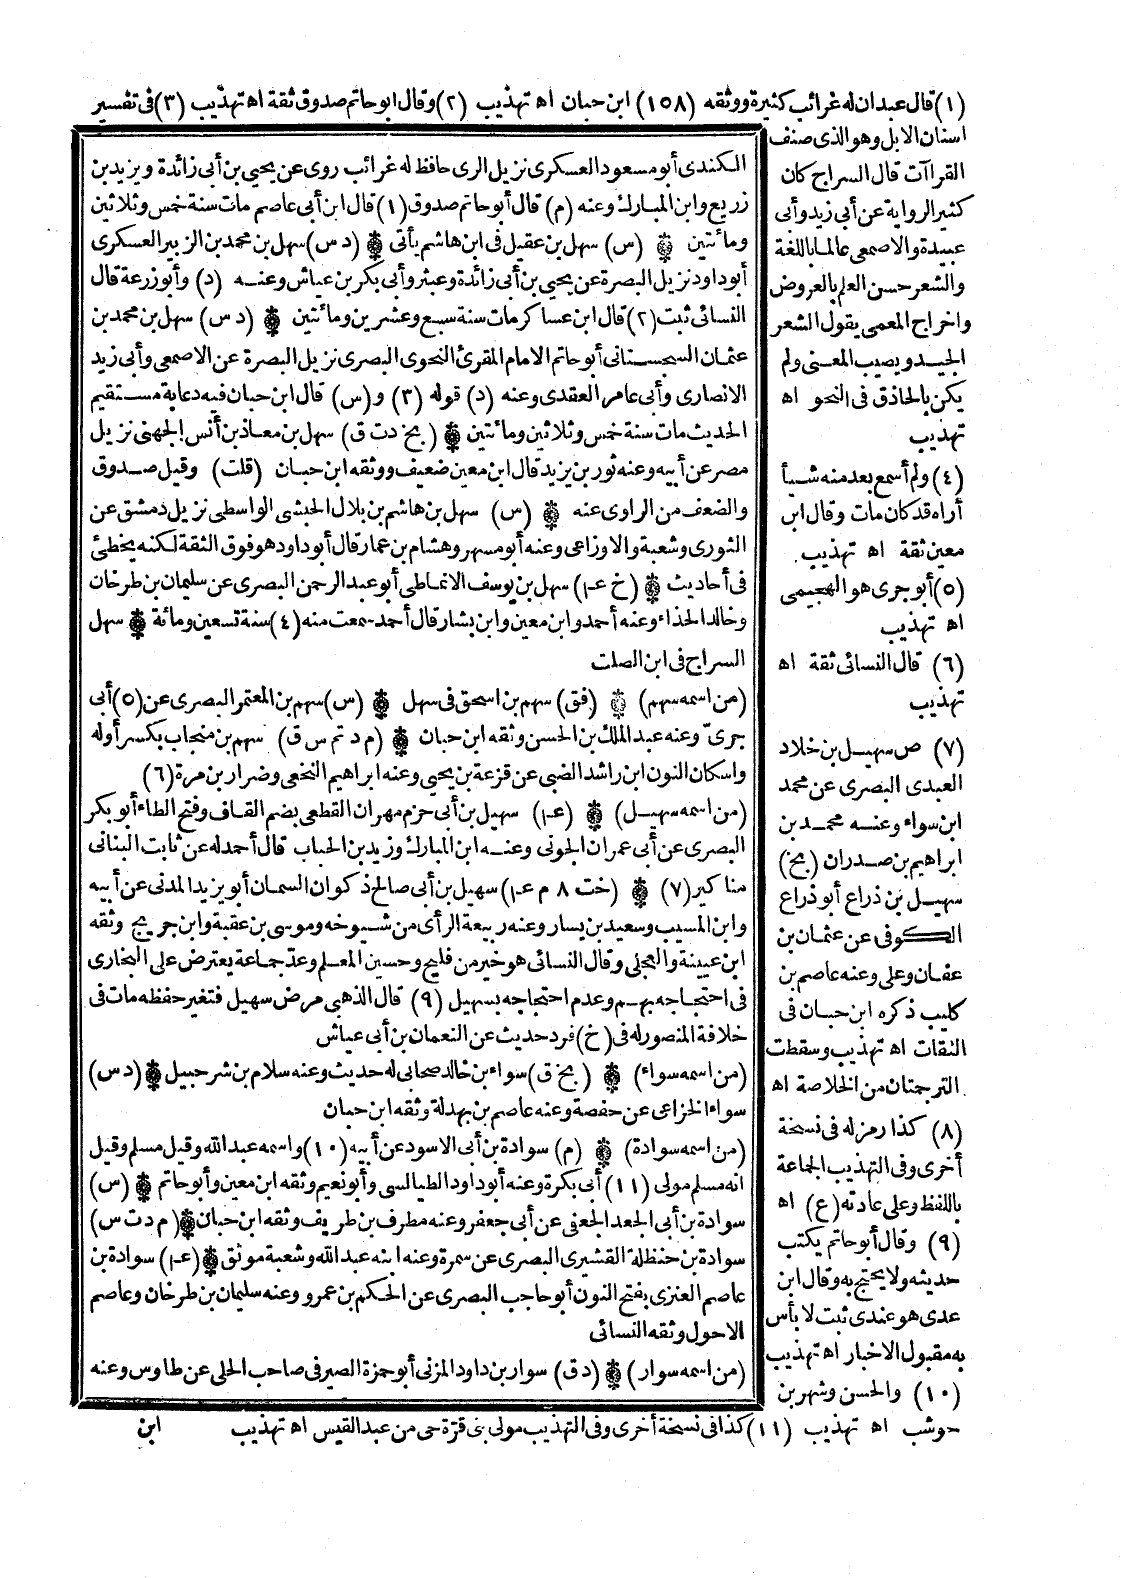 (١) قال عبدان له غرائب كثيرة ووثقه (١٥٨) ابن حبان اه تهذيب (٢) وقال ابو حاتم صدوق ثقة اه تهذيب (٣) فى تفسير
اسنان الابل وهو الذى صنف
القراآت قال السراج كان
كثير الرواية عن أبى زيد وأبى
عبيدة والاصمعى عالما باللغة
والشعر حسن العلم بالعروض
واخراج المعمى يقول الشعر
الجيد ويصيب المعنى ولم
يكن بالحاذق فى النحو اه
تهذيب
(٤) ولم أسمع بعد منه شيأ
أراه قد كان مات وقال ابن
معين ثقة اه تهذيب
(٥) أبو جرى هو الهجيمى
اه تهذيب
(٦) قال النسائى ثقة اه
تهذيب
(٧) ص سهيل بن خلاد
العبدى البصرى عن محمد
ابن سواء وعنه محمد بن
ابراهيم بن صدران (بخ)
سهيل بن ذراع أبو ذراع
الكوفى عن عثمان بن
عفان وعلى وعنه عاصم بن
كليب ذكره ابن حبان فى
الثقات اه تهذيب وسقطت
الترجمتان من الخلاصة اه
(٨) كذا رمز له فى نسخة
أخرى وفى التهذيب الجماعة
باللفظ وعلى عادته (ع) اه
(٩) وقال أبو حاتم يكتب
حديثه ولا يحتج به وقال ابن
عدى هو عندى ثبت لا بأس
به مقبول الاخبار اه تهذيب
(١٠) والحسن وشهر بن
حوشب اه تهذيب (١١) كذا فى نسخة أخرى وفى التهذيب مولى بنى قرّة حى من عبد القيس اه تهذيب
الكندى أبو مسعود العسكرى نزيل الرى حافظ له غرائب روى عن يحيى بن أبى زائدة ويزيد بن
زريع وابن المبارك وعنه (م) قال أبو حاتم صدوق (١) قال ابن أبى عاصم مات سنة خمس وثلاثين
ومائتين ۞ (س) سهل بن عقيل فى ابن هاشم يأتى ۞ (د س) سهل بن محمد بن الزبير العسكرى
أبو داود نزيل البصرة عن يحيى بن أبى زائدة وعبثر وأبى بكر بن عياش وعنه (د) وأبو زرعة قال
النسائى ثبت (٢) قال ابن عساكر مات سنة سبع وعشرين ومائتين ۞ (د س) سهل بن محمد بن
عثمان السجستانى أبو حاتم الامام المقرئ النحوى البصرى نزيل البصرة عن الاصمعى وأبى زيد
الانصارى وأبى عامر العقدى وعنه (د) قوله (٣) و(س) قال ابن حبان فيه دعابة مستقيم
الحديث مات سنة خمس وثلاثين ومائتين ۞ (بخ د ت ق) سهل بن معاذ بن أنس الجهنى نزيل
مصر عن أبيه وعنه ثور بن يزيد قال ابن معين ضعيف ووثقه ابن حبان (قلت) وقيل صدوق
والضعف من الراوى عنه ۞ (س) سهل بن هاشم بن بلال الحبشى الواسطى نزيل دمشق عن
الثورى وشعبة والاوزاعى وعنه أبو مسهر وهشام بن عمار قال أبو داود هو فوق الثقة لكنه يخطئ
فى أحاديث ۞ (خ عـا) سهل بن يوسف الانماطى أبو عبد الرحمن البصرى عن سليمان بن طرخان
وخالد الحذاء وعنه أحمد وابن معين وابن بشار قال أحمد سمعت منه (٤) سنة تسعين ومائة ۞ سهل
السراج فى ابن الصلت
(من اسمه سهم) ۞ (فق) سهم بن اسحق فى سهل ۞ (س) سهم بن المعتمر البصرى عن (٥) أبى
جرىّ وعنه عبد الملك بن الحسن وثقه ابن حبان ۞ (م د تم س ق) سهم بن منجاب بكسر أوله
واسكان النون ابن راشد الضبى عن قزعة بن يحيى وعنه ابراهيم النخعى وضرار بن مرة (٦)
(من اسمه سهيل) ۞ (عـا) سهيل بن أبى حزم مهران القطعى بضم القاف وفتح الطاء أبو بكر
البصرى عن أبى عمران الجونى وعنه ابن المبارك وزيد بن الحباب قال أحمد له عن ثابت البنانى
مناكير (٧) ۞ (خت ٨ م عـا) سهيل بن أبى صالح ذكوان السمان أبو يزيد المدنى عن أبيه
وابن المسيب وسعيد بن يسار وعنه ربيعة الرأى من شيوخه وموسى بن عقبة وابن جريج وثقه
ابن عيينة والعجلى وقال النسائى هو خير من فليح وحسين المعلم وعدّ جماعة يعترض على البخارى
فى احتجاجه بهم وعدم احتجاجه بسهيل (٩) قال الذهبى مرض سهيل فتغير حفظه مات فى
خلافة المنصور له فى (خ) فرد حديث عن النعمان بن أبى عياش
(من اسمه سواء) ۞ (بخ ق) سواء بن خالد صحابى له حديث وعنه سلام بن شرحبيل ۞ (د س)
سواء الخزاعى عن حفصة وعنه عاصم بن بهدلة وثقه ابن حبان
(من اسمه سوادة) ۞ (م) سوادة بن أبى الاسود عن أبيه (١٠) واسمه عبد الله وقيل مسلم وقيل
انه مسلم مولى (١١) أبى بكرة وعنه أبو داود الطيالسى وأبو نعيم وثقه ابن معين وأبو حاتم ۞ (س)
سوادة بن أبى الجعد الجعفى عن أبى جعفر وعنه مطرف بن طريف وثقه ابن حبان ۞ (م د ت س)
سوادة بن حنظلة القشيرى البصرى عن سمرة وعنه ابنه عبد الله وشعبة موثق ۞ (عـا) سوادة بن
عاصم العنزى بفتح النون أبو حاجب البصرى عن الحكم بن عمرو وعنه سليمان بن طرخان وعاصم
الاحول وثقه النسائى
(من اسمه سوار) ۞ (د ق) سوار بن داود المزنى أبو حمزة الصيرفى صاحب الحلى عن طاوس وعنه
ابن